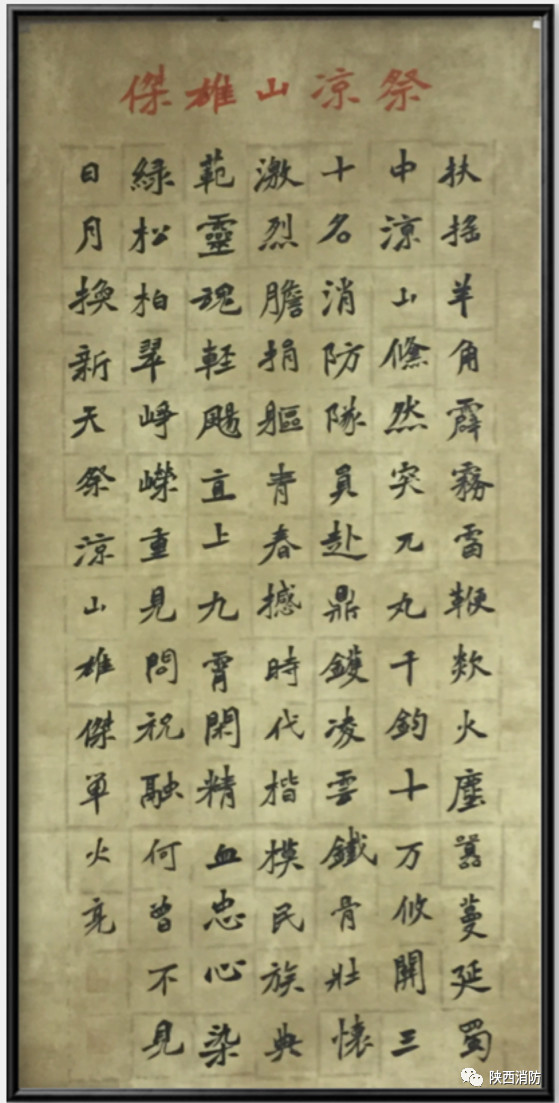 祭凉山雄傑
扶摇羊角霹霧雷鞭欻火塵囂蔓延蜀
中涼山倏然突兀丸千鈞十万攸開三
十名消防隊員赴鼎鑊凌雲鐵骨壯懷
激烈膽捐軀青春撼時代楷模民族典
範靈魂輕颺直上九霄閑精血忠心染
緑松柏翠崢嶸重見問祝融何曾不見
日月換新天祭涼山雄傑单火亮
陕西消防